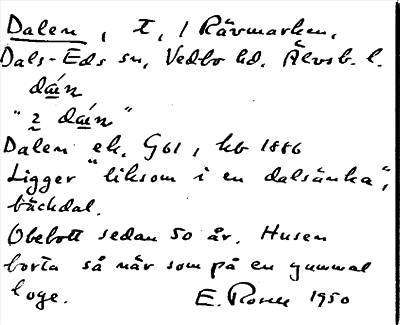 Dalen, t, 1 Rävmarken,
Dals-Eds sn, Vedbo hd. Älvsb. l.
da̱i̱n
"2̰ da̱i̱n"
Dalen ek. G61, kb 1886
Ligger "liksom i en dalsänka",
bäckdal.
Obebott sedan 50 år. Husen
borta så när som på en gammal
loge. E. Rosell 1950